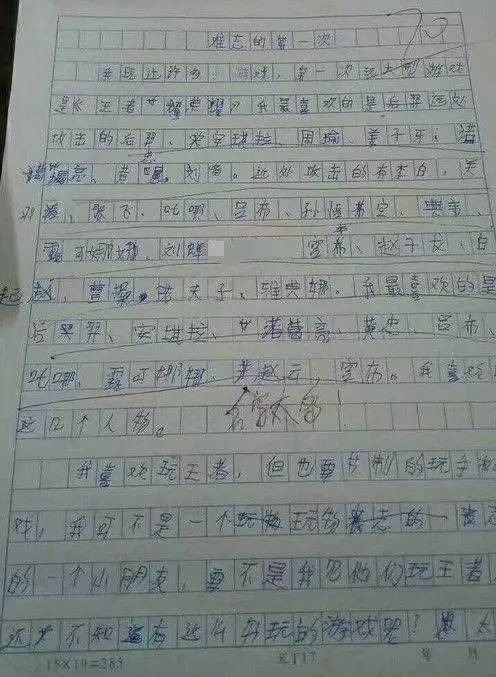 70
难忘的第一次
我玩过许多游戏,第一次玩大型游戏
是《王者荣耀》我最喜欢的是后羿远处
攻击的后羿、安琪拉、周瑜、姜子牙、诸
葛亮、黄忠、刘备。近处攻击的有李白、关
羽、张飞、哪吒、吕布、孙悟空、典韦、
露娜、刘禅 宫本、赵子龙、白
起、曹操、诺夫子、雅典娜。我最喜欢的是
后羿、安琪拉、诸葛亮、黄忠、吕布、
哪吒、露娜、赵云、宫布。我喜欢
这几个人物。
名字太多!
我喜欢玩王者,但也要节制的玩手
戏,我可不是一个玩物丧志的
的一个小朋友,要不是我见他们玩王者,
还不知道有这么好玩的游戏呢!太
15×19=285
K117
年 月